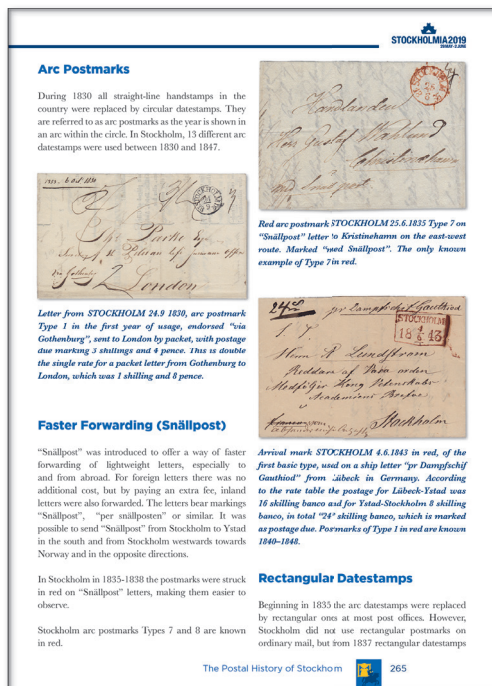 STOCKHOLMIA2019
29 MAY-2 JUNE
Arc Postmarks
During 1830 all straight-line handstamps in the
country were replaced by circular datestamps. They
are referred to as arc postmarks as the year is shown in
an arc within the circle. In Stockholm, 13 different arc
datestamps were used between 1830 and 1847.
London
Letter from STOCKHOLM 24.9 1830, arc postmark
Type 1 in the first year of usage, endorsed “via
Gothenburg”, sent to London by packet, with postage
due marking 3 shillings and 4 pence. This is double
the single rate for a packet letter from Gothenburg to
London, which was 1 shilling and 8 pence.
Faster Forwarding (Snällpost)
“Snällpost” was introduced to offer a way of faster
forwarding of lightweight letters, especially to
and from abroad. For foreign letters there was no
additional cost, but by paying an extra fee, inland
letters were also forwarded. The letters bear markings
“Snällpost”, “per snällposten” or similar. It was
possible to send “Snällpost” from Stockholm to Ystad
in the south and from Stockholm westwards towards
Norway and in the opposite directions.
In Stockholm in 1835-1838 the postmarks were struck
in red on “Snällpost” letters, making them easier to
observe.
Stockholm arc postmarks Types 7 and 8 are known
in red.
Red arc postmark STOCKHOLM 25.6.1835 Type 7 on
“Snällpost” letter to Kristinehamn on the east-west
route. Marked “med Snällpost”. The only known
example of Type 7 in red.
pr Dampschif Gauthiod
STOCKHOLM
1843
Stockholm
Arrival mark STOCKHOLM 4.6.1843 in red, of the
first basic type, used on a ship letter “pr Dampschif
Gauthiod” from Lübeck in Germany. According
to the rate table the postage for Lübeck-Ystad was
16 skilling banco and for Ystad-Stockholm 8 skilling
banco, in total “24” skilling banco, which is marked
as postage due. Postmarks of Type 1 in red are known
1840–1848.
Rectangular Datestamps
Beginning in 1835 the arc datestamps were replaced
by rectangular ones at most post offices. However,
Stockholm did not use rectangular postmarks on
ordinary mail, but from 1837 rectangular datestamps
The Postal History of Stockhom
265